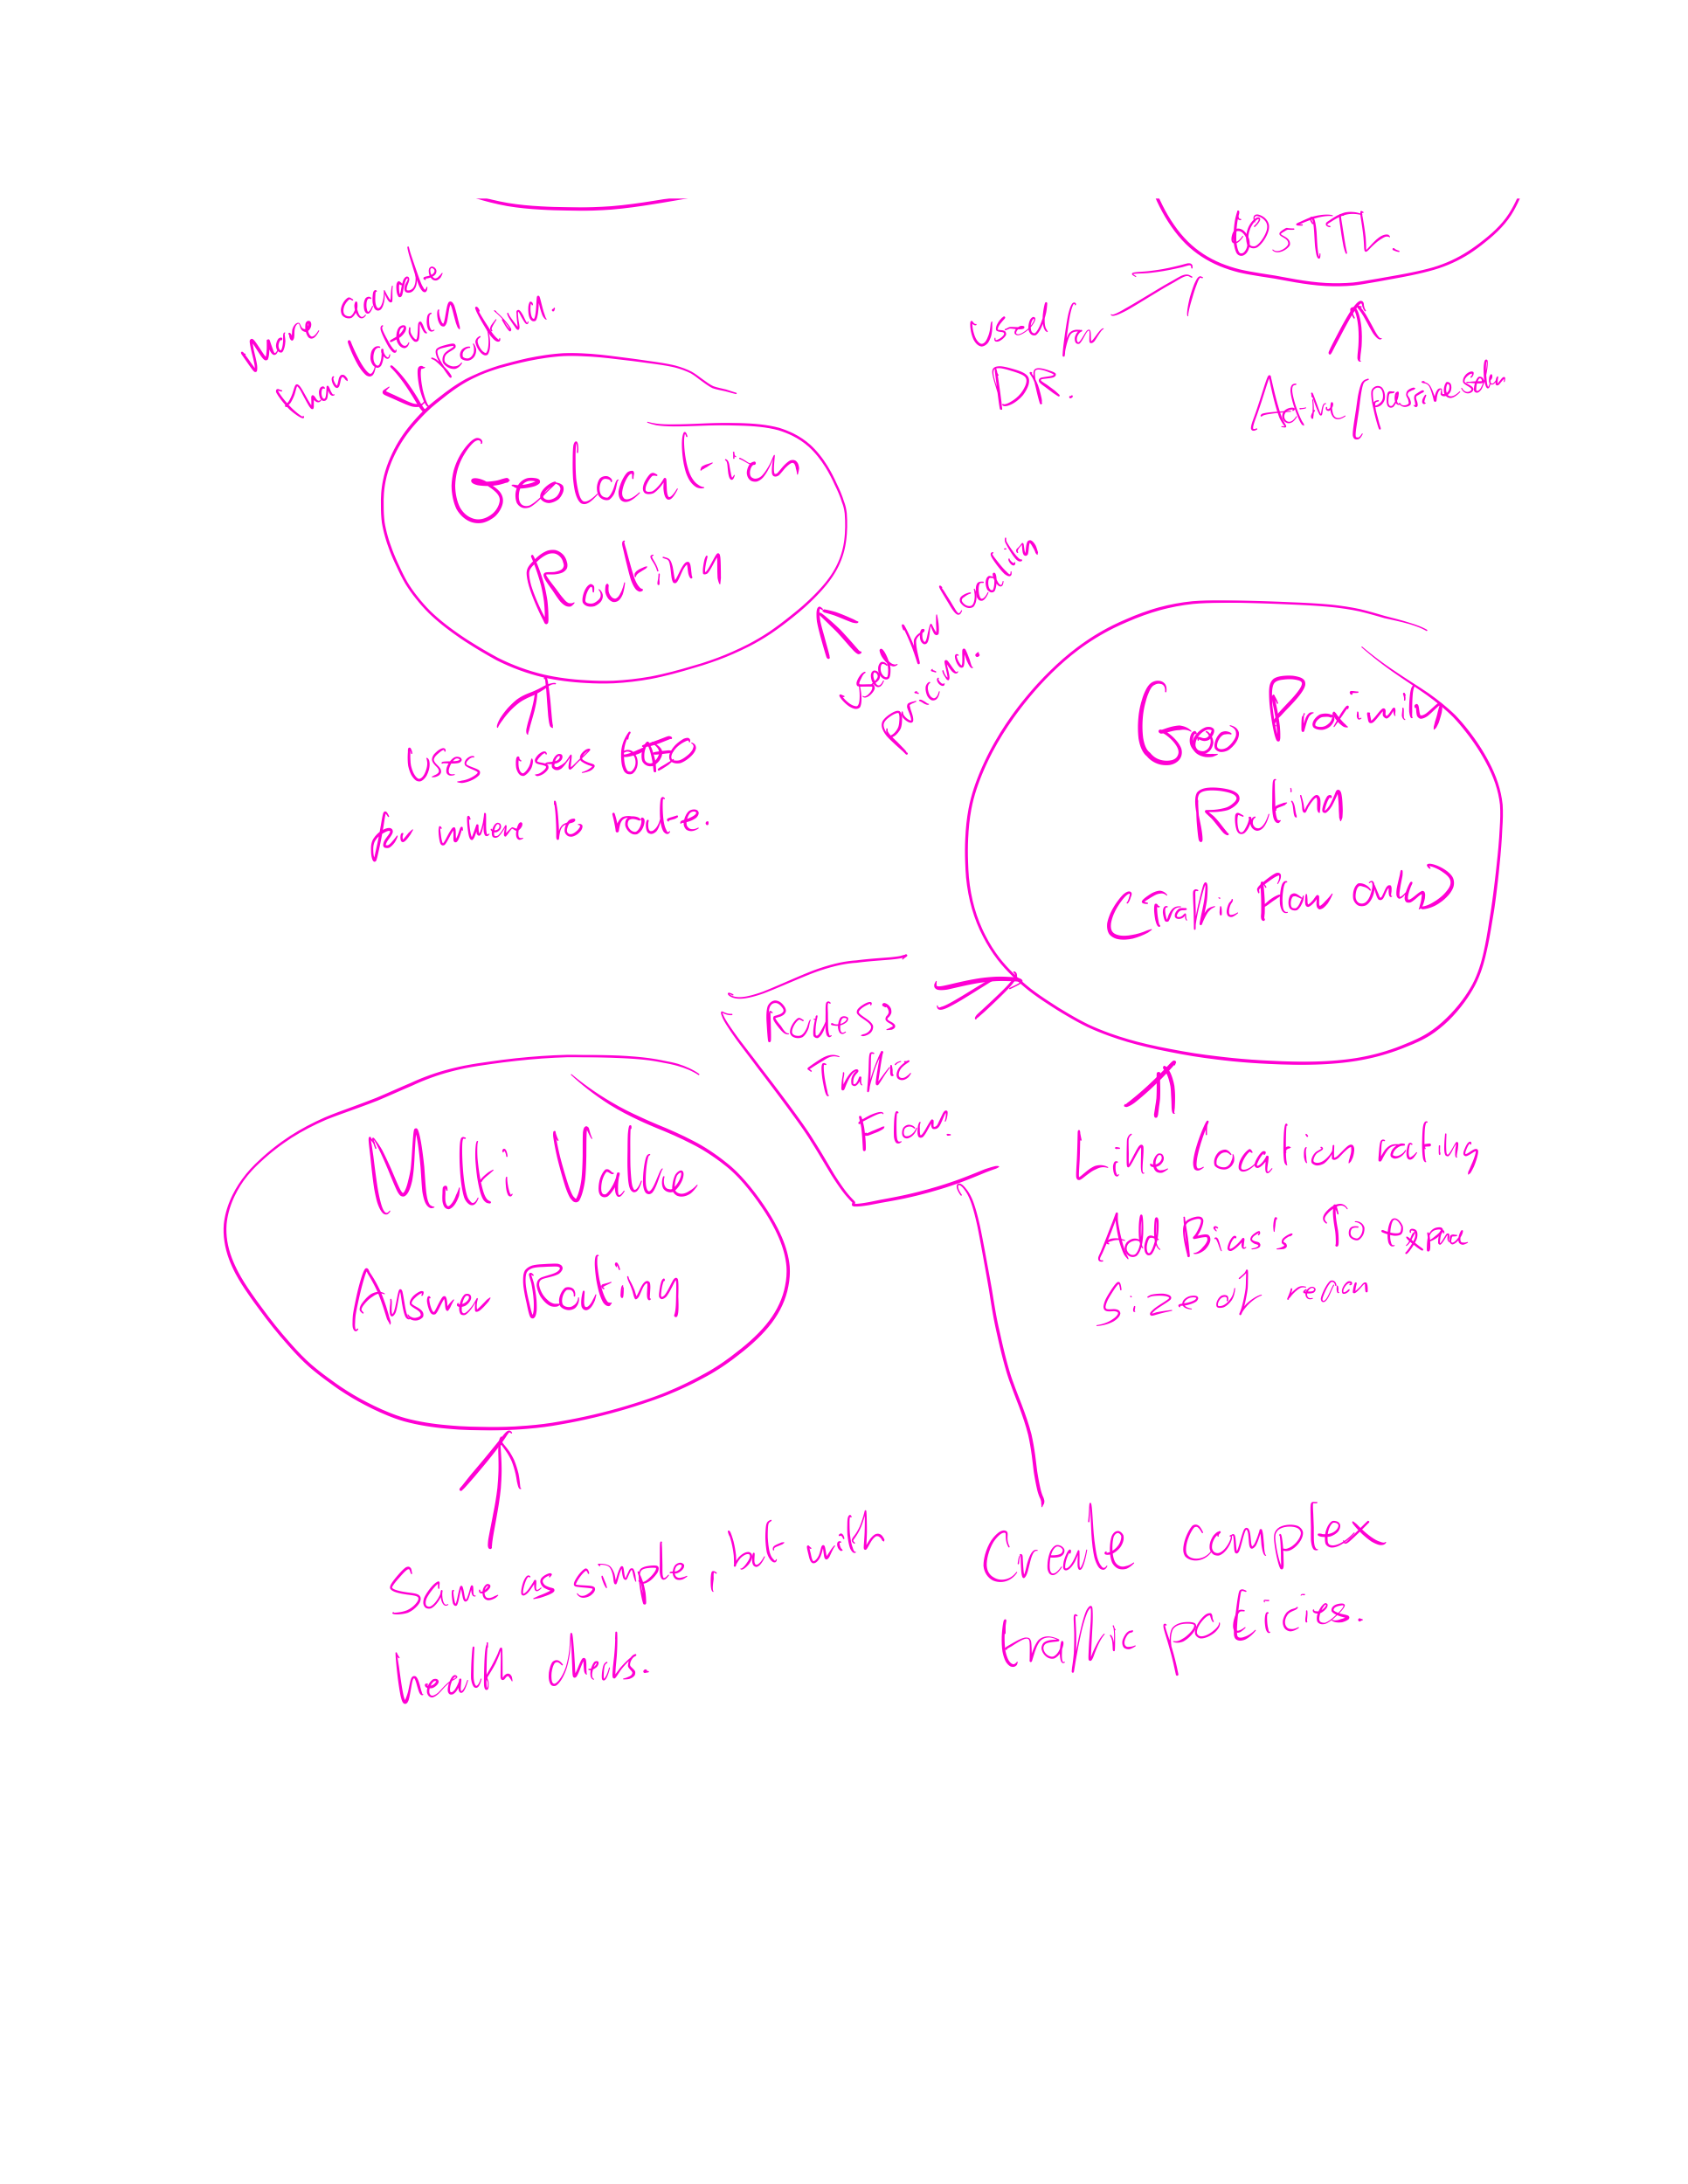 60s TTL.
used for
DR.
Active/passive setup
more accurate
than latency
Routing.
Geolocation
Routing
used for location
pricing.
Uses users
for where to route.
Geo Proximity
Routing
(Traffic Flow only)
Route53
Traffic
Flow.
Like location routing
Add Bias's To
size of
Multi Value
Answer Routing
Same as simple, but with
health checks.
Create complex
traffic policies.